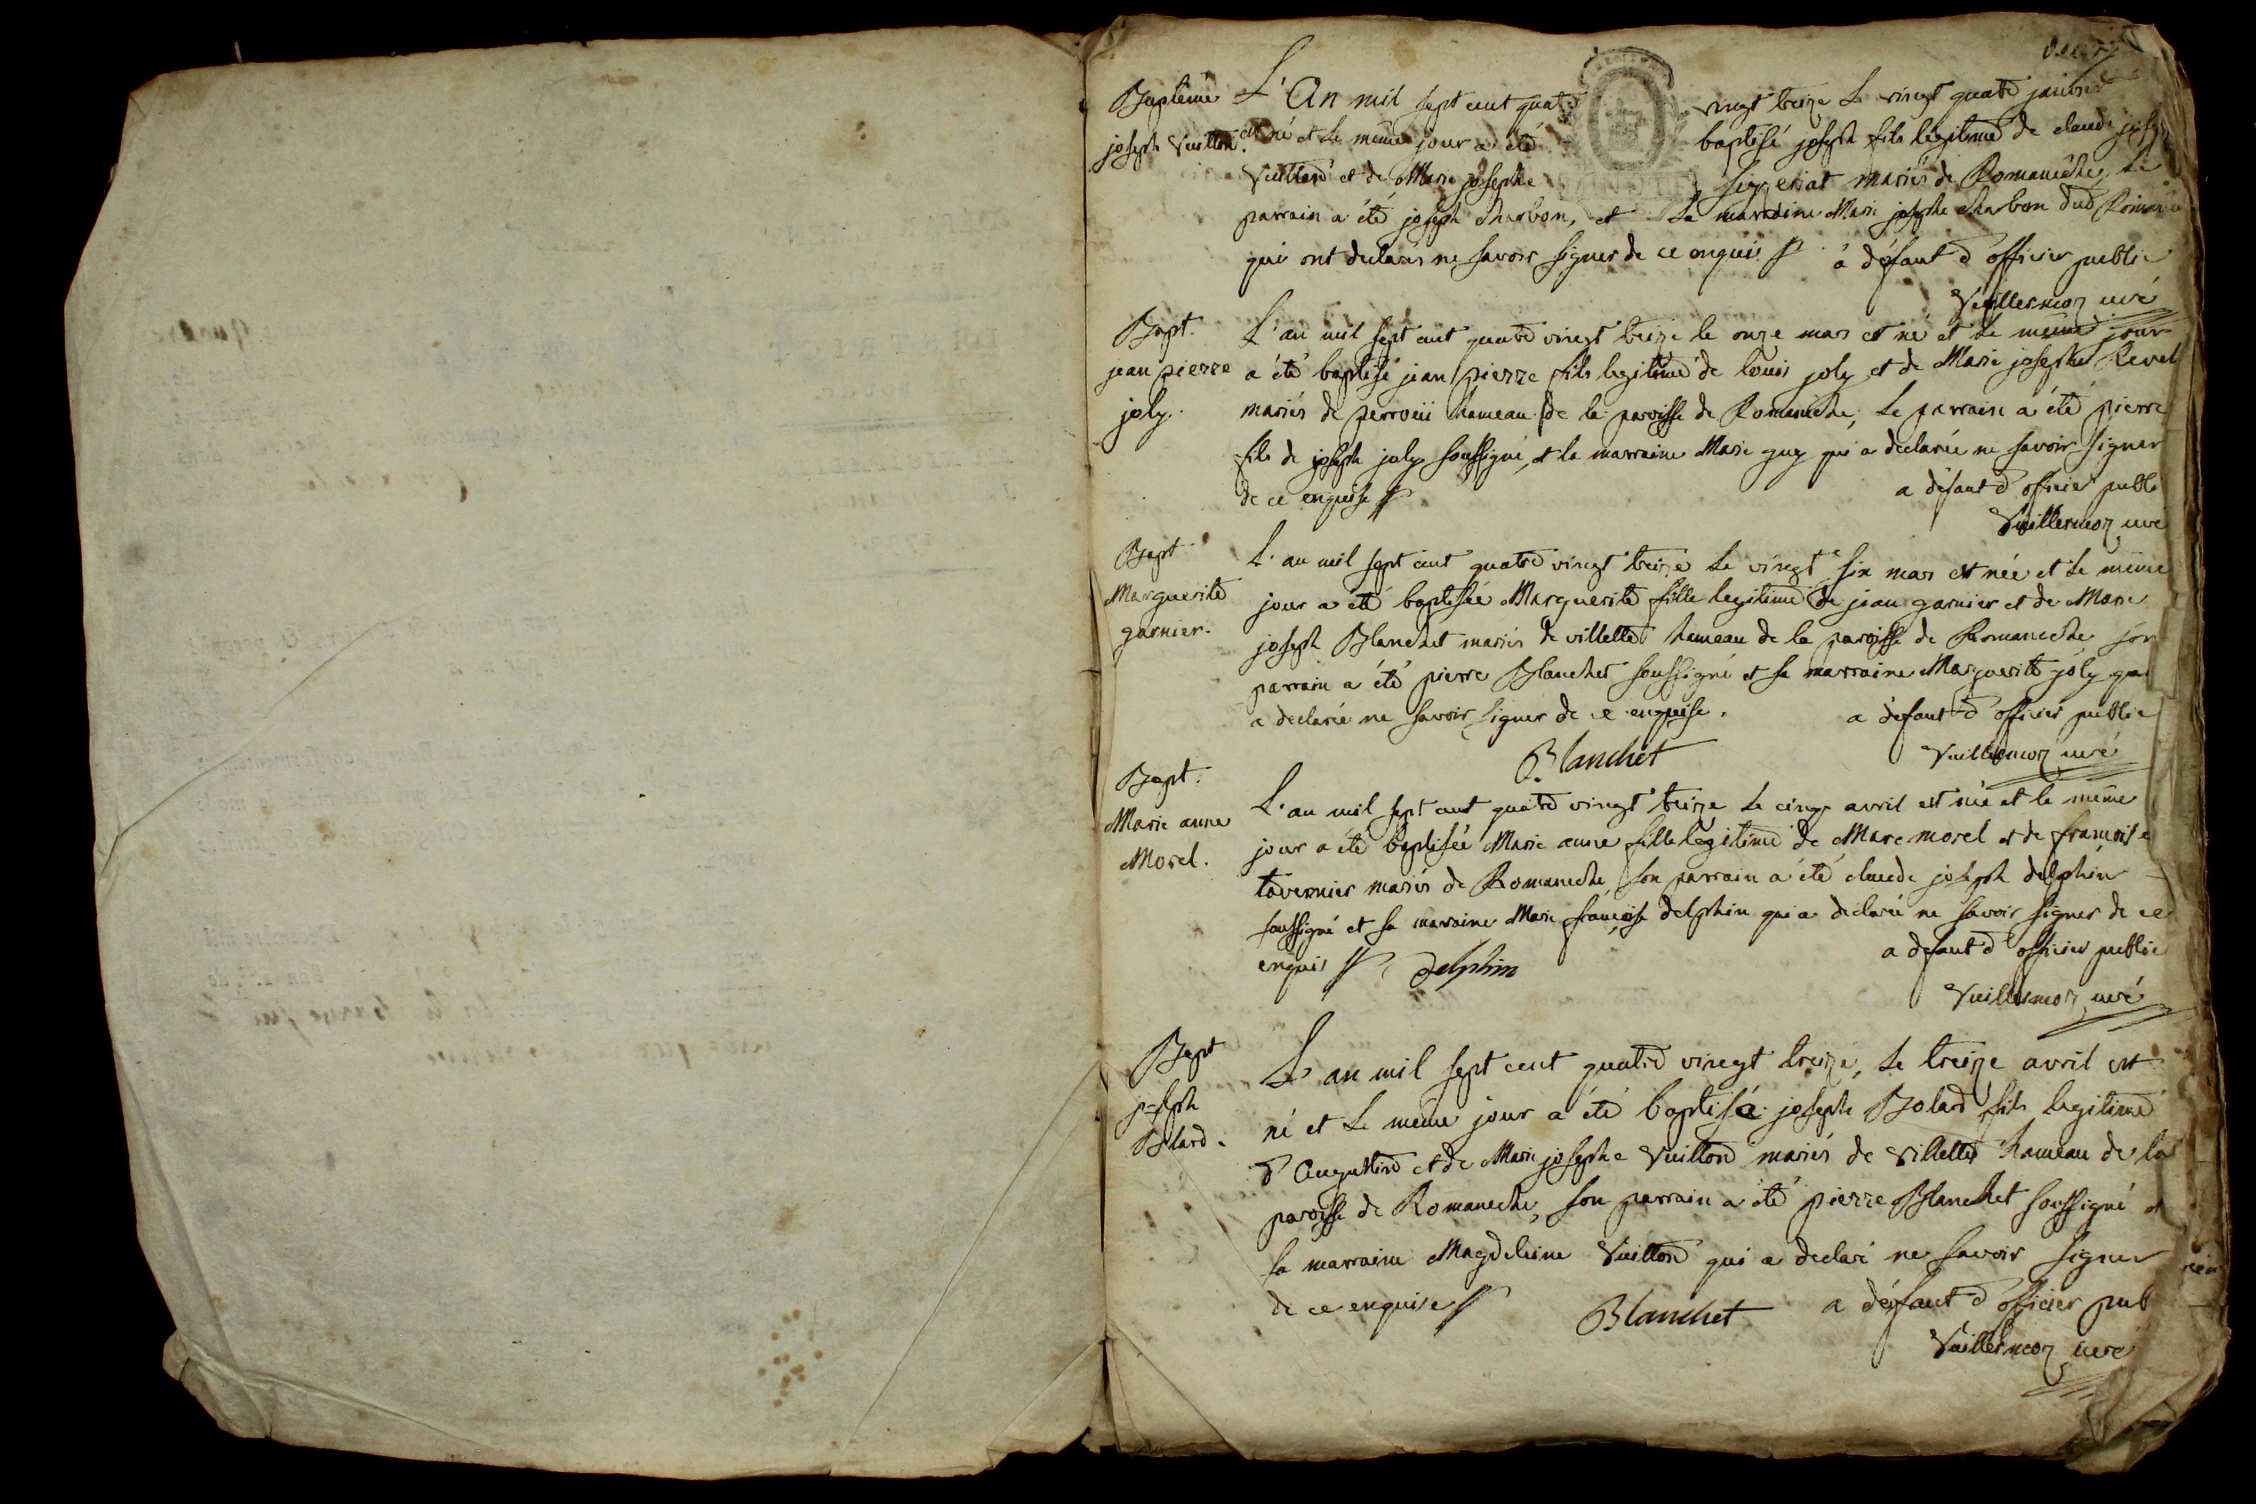 Baptême
joseph Vuitton.
L'An mil sept cent quatre vingt treize le vingt quatre janvier
est né et le même jour a été baptisé joseph fils légitime de claude joseph
Vuitton et de Marie josephe mariés de Romanêche, le
parrain a été joseph charbon, et la marraine Marie josephe charbon dud
qui ont declarés ne savoir signer de ce enquis à défaut d'officier public
Vuillermoz curé
Bapt.
jean pierre
joly.
L'an mil sept cent quatre vingt treize le onze mars est né et le même jour
a été baptisé jean pierre fils legitime de louis joly et de Marie josephe Revel
mariés de perroux hameau de la paroisse de Romanêche, le parrain a été pierre
fils de joseph joly soussigné, et la marraine Marie guy qui a declarée ne savoir signer
de ce enquise
a défaut d'officier publi
Vuillermoz curé
Bapt
Marguerite
garnier.
L'an mil sept cent quatre vingt treize le vingt six mars est née et le même
jour a été baptisée Marguerite fille legitime de jean garnier et de Marie
joseph Blanchet mariés de villette hameau de la paroisse de Romaneche son
parrain a été pierre Blanchet soussigné et sa marraine Marguerite joly qui
a declarée ne savoir signer de ce enquise.
a défaut d'officier public
Blanchet
Vuillermoz curé
Bapt.
Marie anne
Morel.
L'an mil sept cent quatre vingt treize le cinq avril est née et le même
jour a été baptisée Marie anne fille légitime de Marc morel et de françoise
tavernier mariés de Romaneche son parrain a été claude joseph delphin
soussigné et sa marraine Marie françoise delphin qui a declarée ne savoir signer de ce
enquis
delphin
a defaut d'officier public
Vuillermoz curé
Bapt
joseph
Bolard.
L'an mil sept cent quatre vingt treize, le treize avril est
né et le même jour a été baptisé joseph Bolard fils legitime
d'Augustin et de Marie josephe Vuitton mariés de Villette hameau de la
paroisse de Romaneche, son parrain a été pierre Blanchet soussigné et
sa marraine Magdeleine Vuitton qui a declaré ne savoir signer
de ce enquise
Blanchet
a défaut d'officier pub
Vuillermoz curé